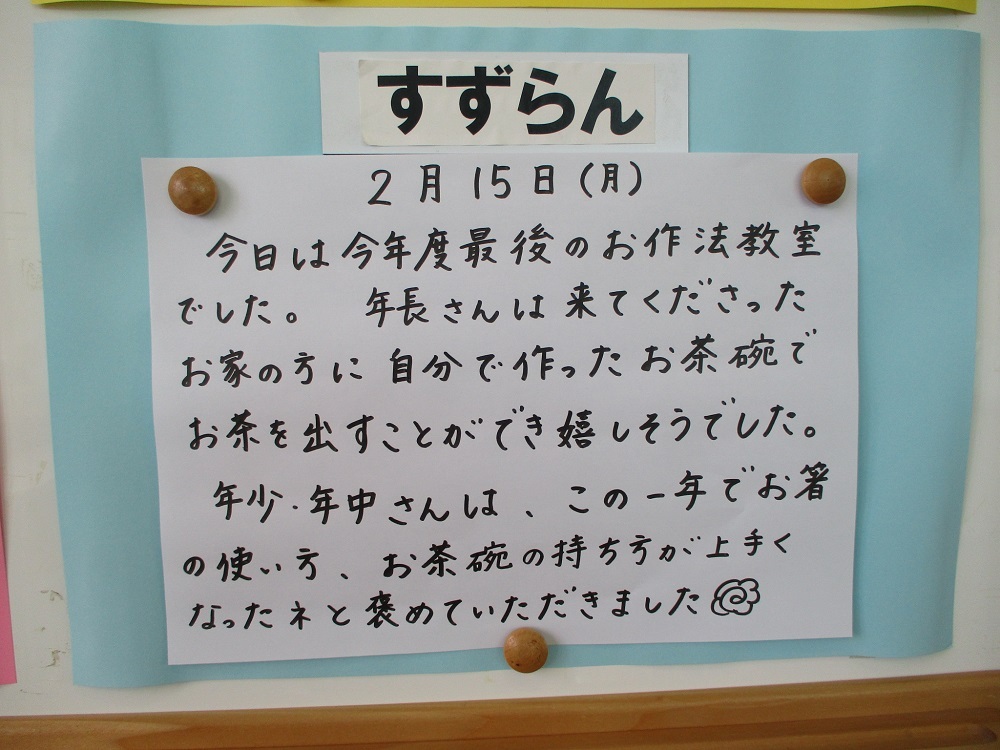 すずらん
2月15日(月)
今日は今年度最後のお作法教室
でした。 年長さんは来てくださった
お家の方に自分で作ったお茶碗で
お茶を出すことができ嬉しそうでした。
年少・年中さんは、この一年でお箸
の使い方、お茶碗の持ち方が上手く
なったネと褒めていただきました